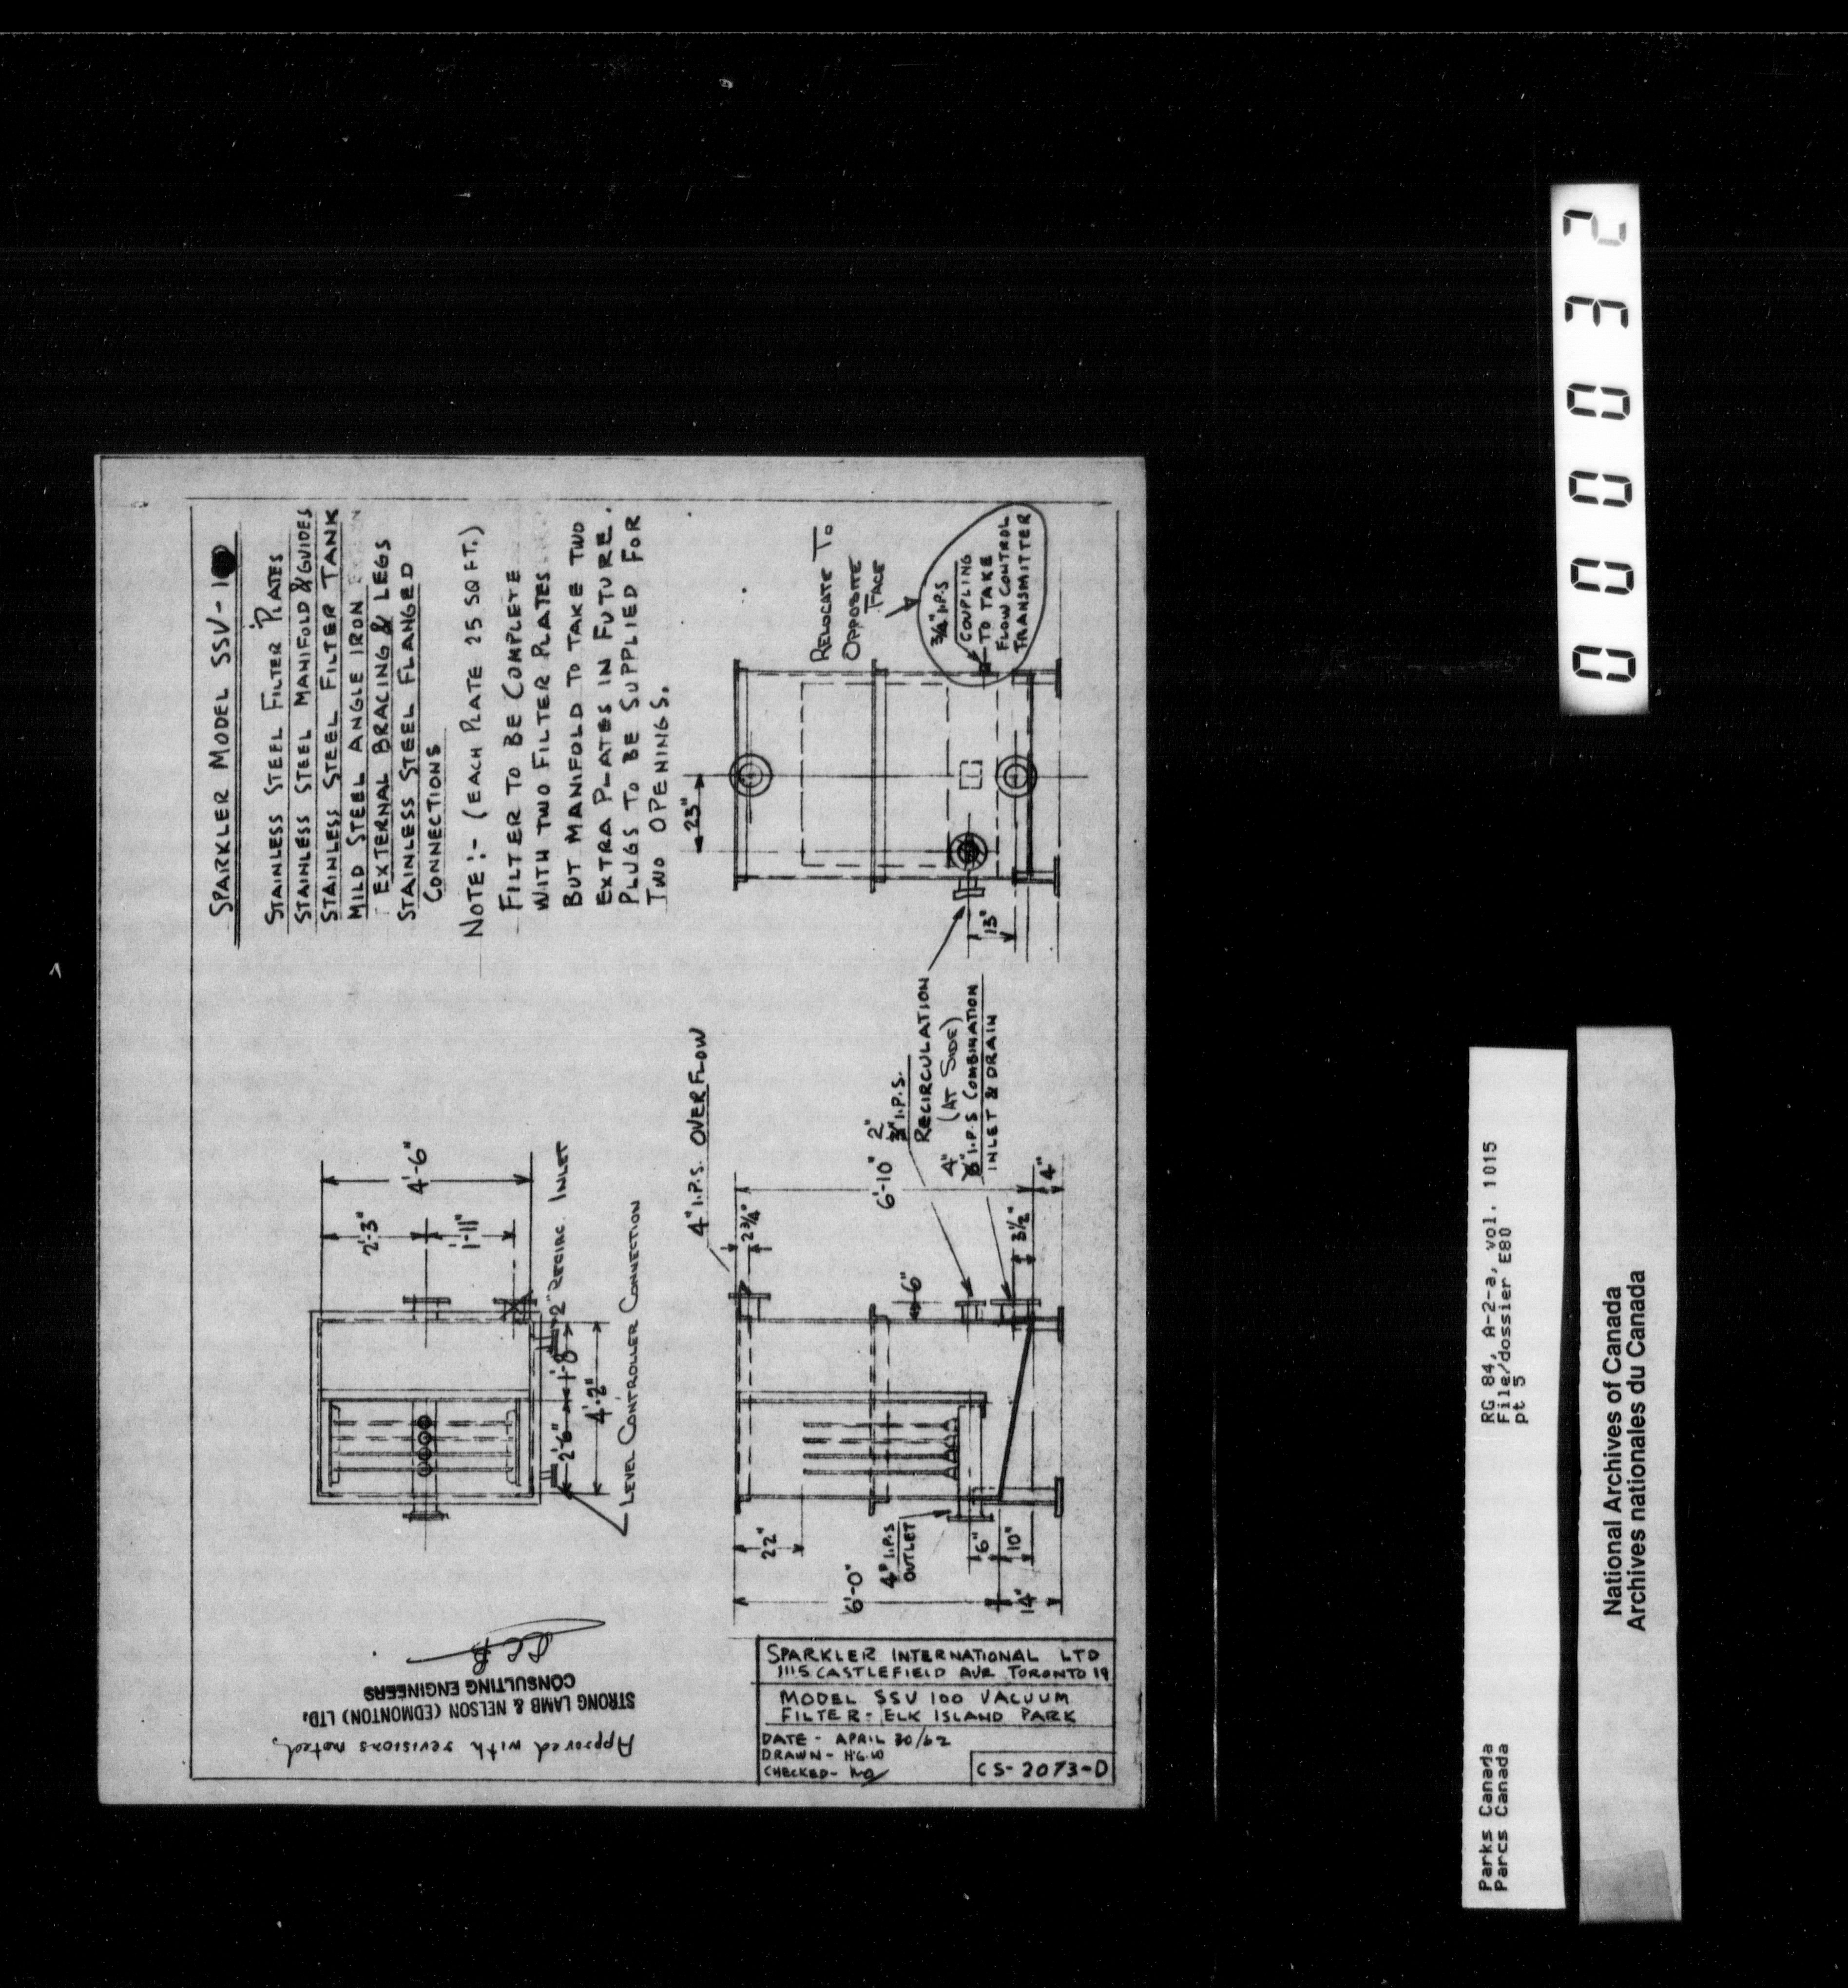 SPARKLER MODEL SSV-1
STAINLESS STEEL FILTER PLATES
STAINLESS STEEL MANIFOLD & GUIDES
STAINLESS STEEL FILTER TANK
MILD STEEL ANGLE IRON
EXTERNAL BRACING & LEGS
STAINLESS STEEL FLANGED
CONNECTIONS
NOTE:- (EACH PLATE 25 SQ FT.)
FILTER TO BE COMPLETE
WITH TWO FILTER PLATES
BUT MANIFOLD TO TAKE TWO
EXTRA PLATES IN FUTURE.
PLUGS TO BE SUPPLIED FOR
TWO OPENINGS.
4'-6"
2'-3"
1'-11"
2" RECIRC. INLET
2'-6"
1'-8"
4'-2"
LEVEL CONTROLLER CONNECTION
4" I.P.S. OVERFLOW
2 3/4"
6'-10"
2"
3" I.P.S.
RECIRCULATION
(AT SIDE)
4"
6" I.P.S COMBINATION
INLET & DRAIN
6"
3 1/2"
4"
22"
6'-0"
4" I.P.S
OUTLET
6"
10"
14"
23"
13"
RELOCATE TO
OPPOSITE
FACE
3/4" I.P.S
COUPLING
TO TAKE
FLOW CONTROL
TRANSMITTER
Approved with revisions noted.
STRONG LAMB & NELSON (EDMONTON) LTD.
CONSULTING ENGINEERS
SPARKLER INTERNATIONAL LTD
1115 CASTLEFIELD AVR TORONTO 19
MODEL SSV 100 VACUUM
FILTER - ELK ISLAND PARK
DATE - APRIL 30/62
DRAWN - H.G.W
CHECKED -
CS-2073-D
000032
Parks Canada
Parcs Canada
RG 84, A-2-a, vol. 1015
File/dossier E80
pt 5
National Archives of Canada
Archives nationales du Canada